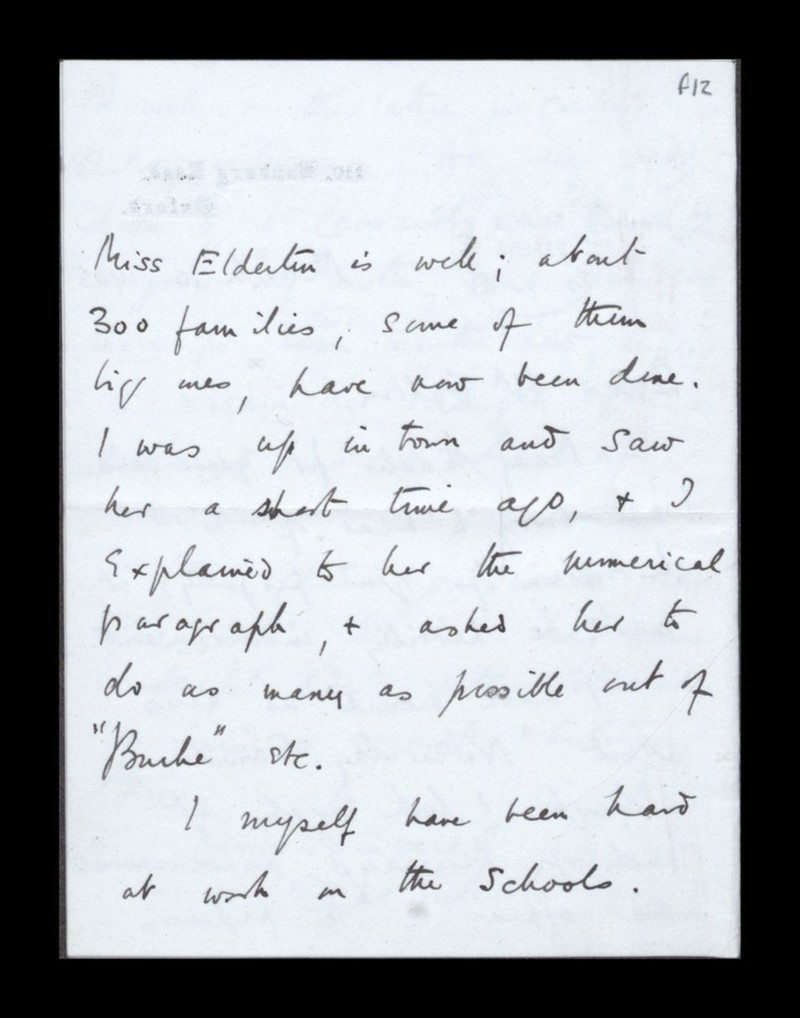 A12
Miss Elderton is well; about
300 families, some of them
big ones, have now been done.
I was up in town and saw
her a short time ago, & I
explained to her the numerical
paragraph, & asked her to
do as many as possible out of
"Burke" etc.
I myself have been hard
at work on the Schools.